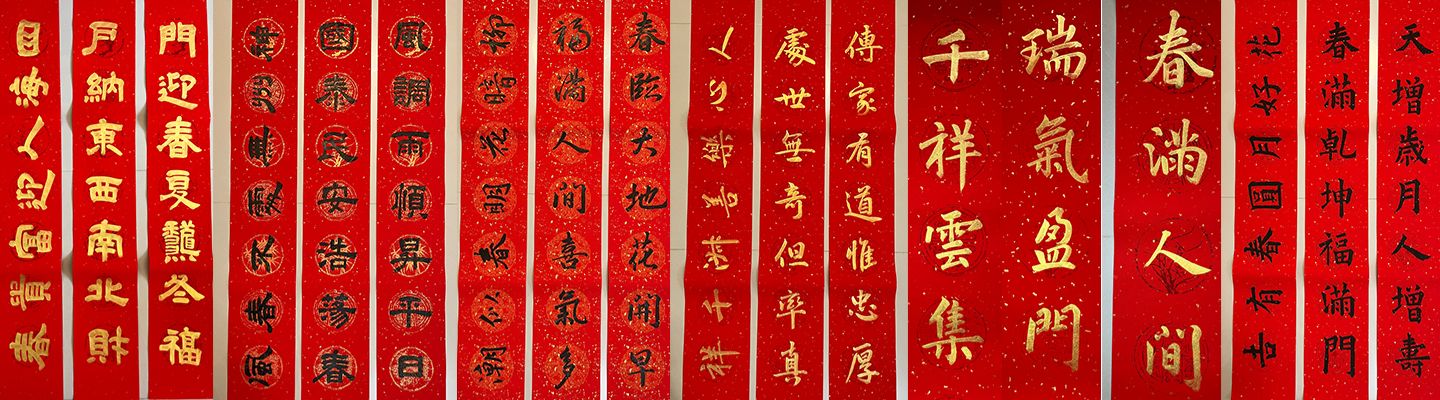 天增歳月人增壽
春滿乾坤福滿門
花好月圓春有
春滿人間
瑞氣盈門
千祥雲集
傳家有道惟忠厚
處世無奇但率真
人心樂善千祥
春臨大地花開早
福滿人間喜氣多
柳暗花明春似潮
風調雨順昇平日
國泰民安浩蕩春
神州無處不春風
門迎春夏龝冬福
戶納東西南北財
四海人迎富貴春